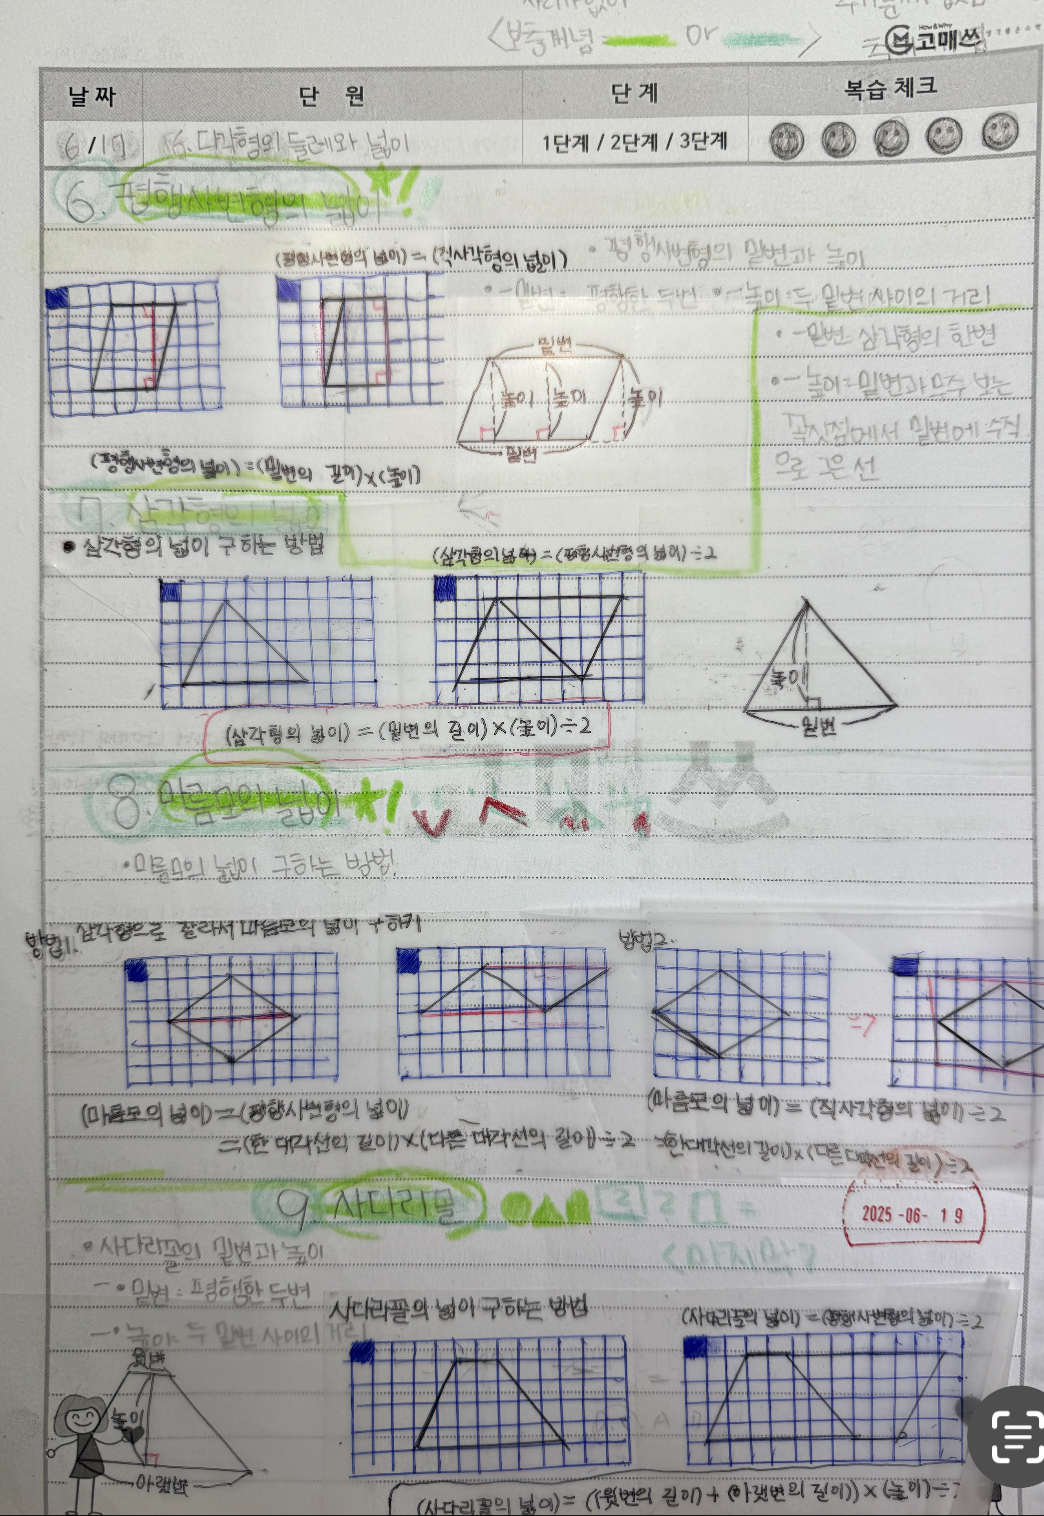 <보충개념 = or >
How&Why
고매쓰
날 짜 단 원 단 계 복습 체크
6/17 6. 다각형의 둘레와 넓이 1단계 / 2단계 / 3단계
6. 평행사변형의 넓이 ★!
(평행사변형의 넓이) = (직사각형의 넓이)
• 평행사변형의 밑변과 높이
• - 밑변 : 평행한 두 변 • - 높이 : 두 밑변 사이의 거리
밑변
높이 높이 높이
밑변
• - 밑변 : 삼각형의 한변
• - 높이 = 밑변과 마주 보는
꼭짓점에서 밑변에 수직
으로 그은 선
(평행사변형의 넓이) = (밑변의 길이) × (높이)
7. 삼각형의 넓이
• 삼각형의 넓이 구하는 방법
(삼각형의 넓이) = (평행사변형의 넓이) ÷ 2
높이
밑변
(삼각형의 넓이) = (밑변의 길이) × (높이) ÷ 2
8. 마름모의 넓이 ★!
• 마름모의 넓이 구하는 방법!
방법1. 삼각형으로 잘라서 마름모의 넓이 구하기
방법2.
=>
(마름모의 넓이) = (평행사변형의 넓이)
= (한 대각선의 길이) × (다른 대각선의 길이) ÷ 2
(마름모의 넓이) = (직사각형의 넓이) ÷ 2
= (한 대각선의 길이) × (다른 대각선의 길이) ÷ 2
9. 사다리꼴
2025-06-19
<마지막>
• 사다리꼴의 밑변과 높이
- • 밑변 = 평행한 두변
- • 높이 : 두 밑변 사이의 거리
사다리꼴의 넓이 구하는 방법
(사다리꼴의 넓이) = (평행사변형의 넓이) ÷ 2
윗변
높이
아랫변
(사다리꼴의 넓이) = ((윗변의 길이) + (아랫변의 길이)) × (높이) ÷